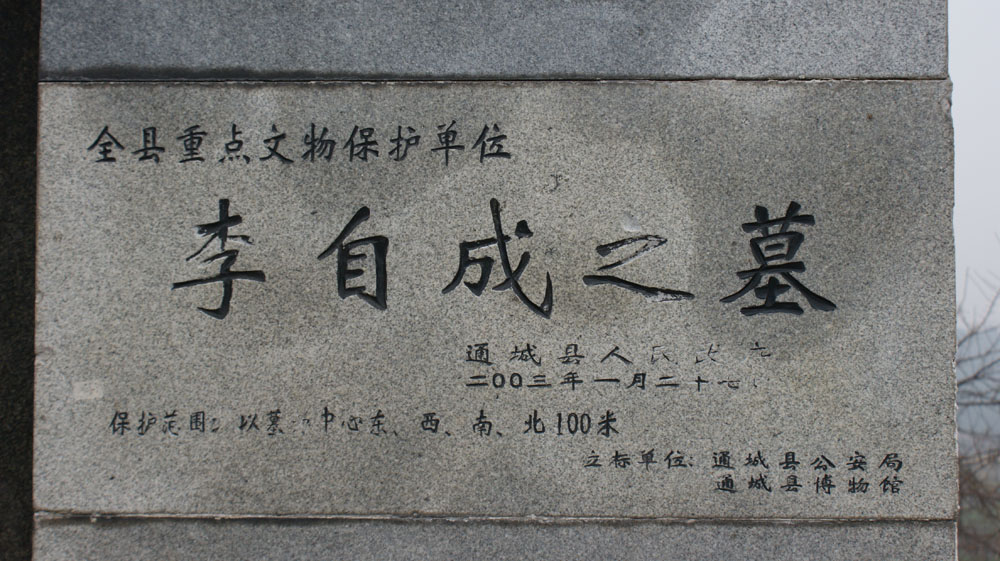 全县重点文物保护单位
李自成之墓
通城县人民政
二00三年一月二十七日
保护范围：以墓 中心东、西、南、北100米
立标单位：通城县公安局
通城县博物馆